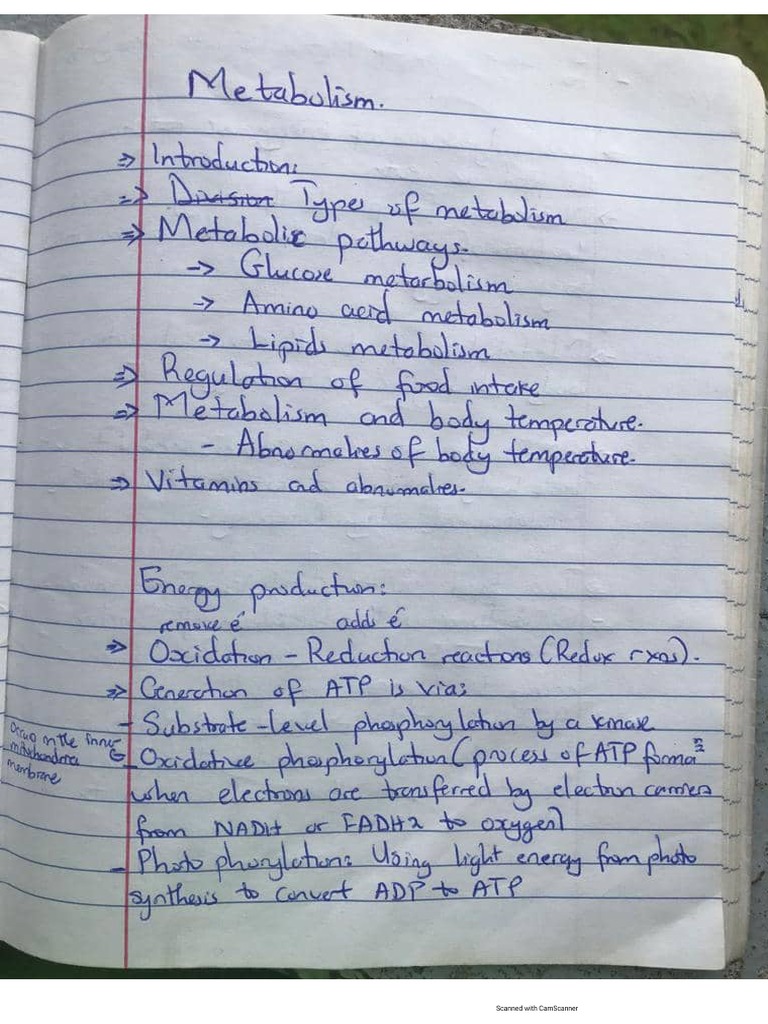 Metabolism.
⇒ Introduction:
⇒ Division Types of metabolism
⇒ Metabolic pathways.
→ Glucose metarbolism
→ Amino acid metabolism
→ Lipids metabolism
⇒ Regulation of food intake
⇒ Metabolism and body temperature.
- Abnormalies of body temperature.
⇒ Vitamins ad abnumalies.
Energy production:
remove é adds é
⇒ Oxidation - Reduction reactions (Redox rxns).
⇒ Generation of ATP is via:
- Substrate-level phosphorylation by a kinase
occurs in the inner
mitochondria
membrane
- Oxidative phosphorylation (process of ATP forma
when electrons are transferred by electron carriers
from NADH or FADH2 to oxygen)
- Photo phorylation: Using light energy from photo
synthesis to convert ADP to ATP
Scanned with CamScanner